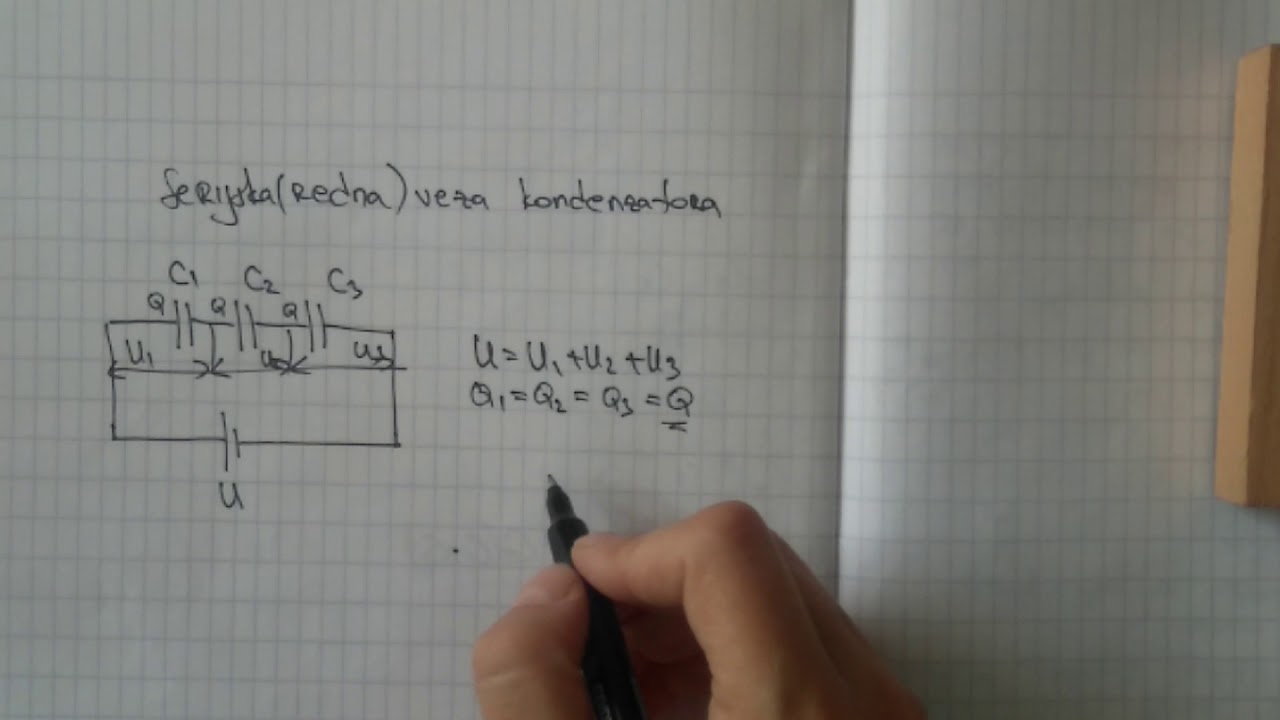 Serijska (redna) veza kondenzatora
C₁ C₂ C₃
Q Q Q
U₁ U₂ U₃
U = U₁ + U₂ + U₃
Q₁ = Q₂ = Q₃ = Q
U